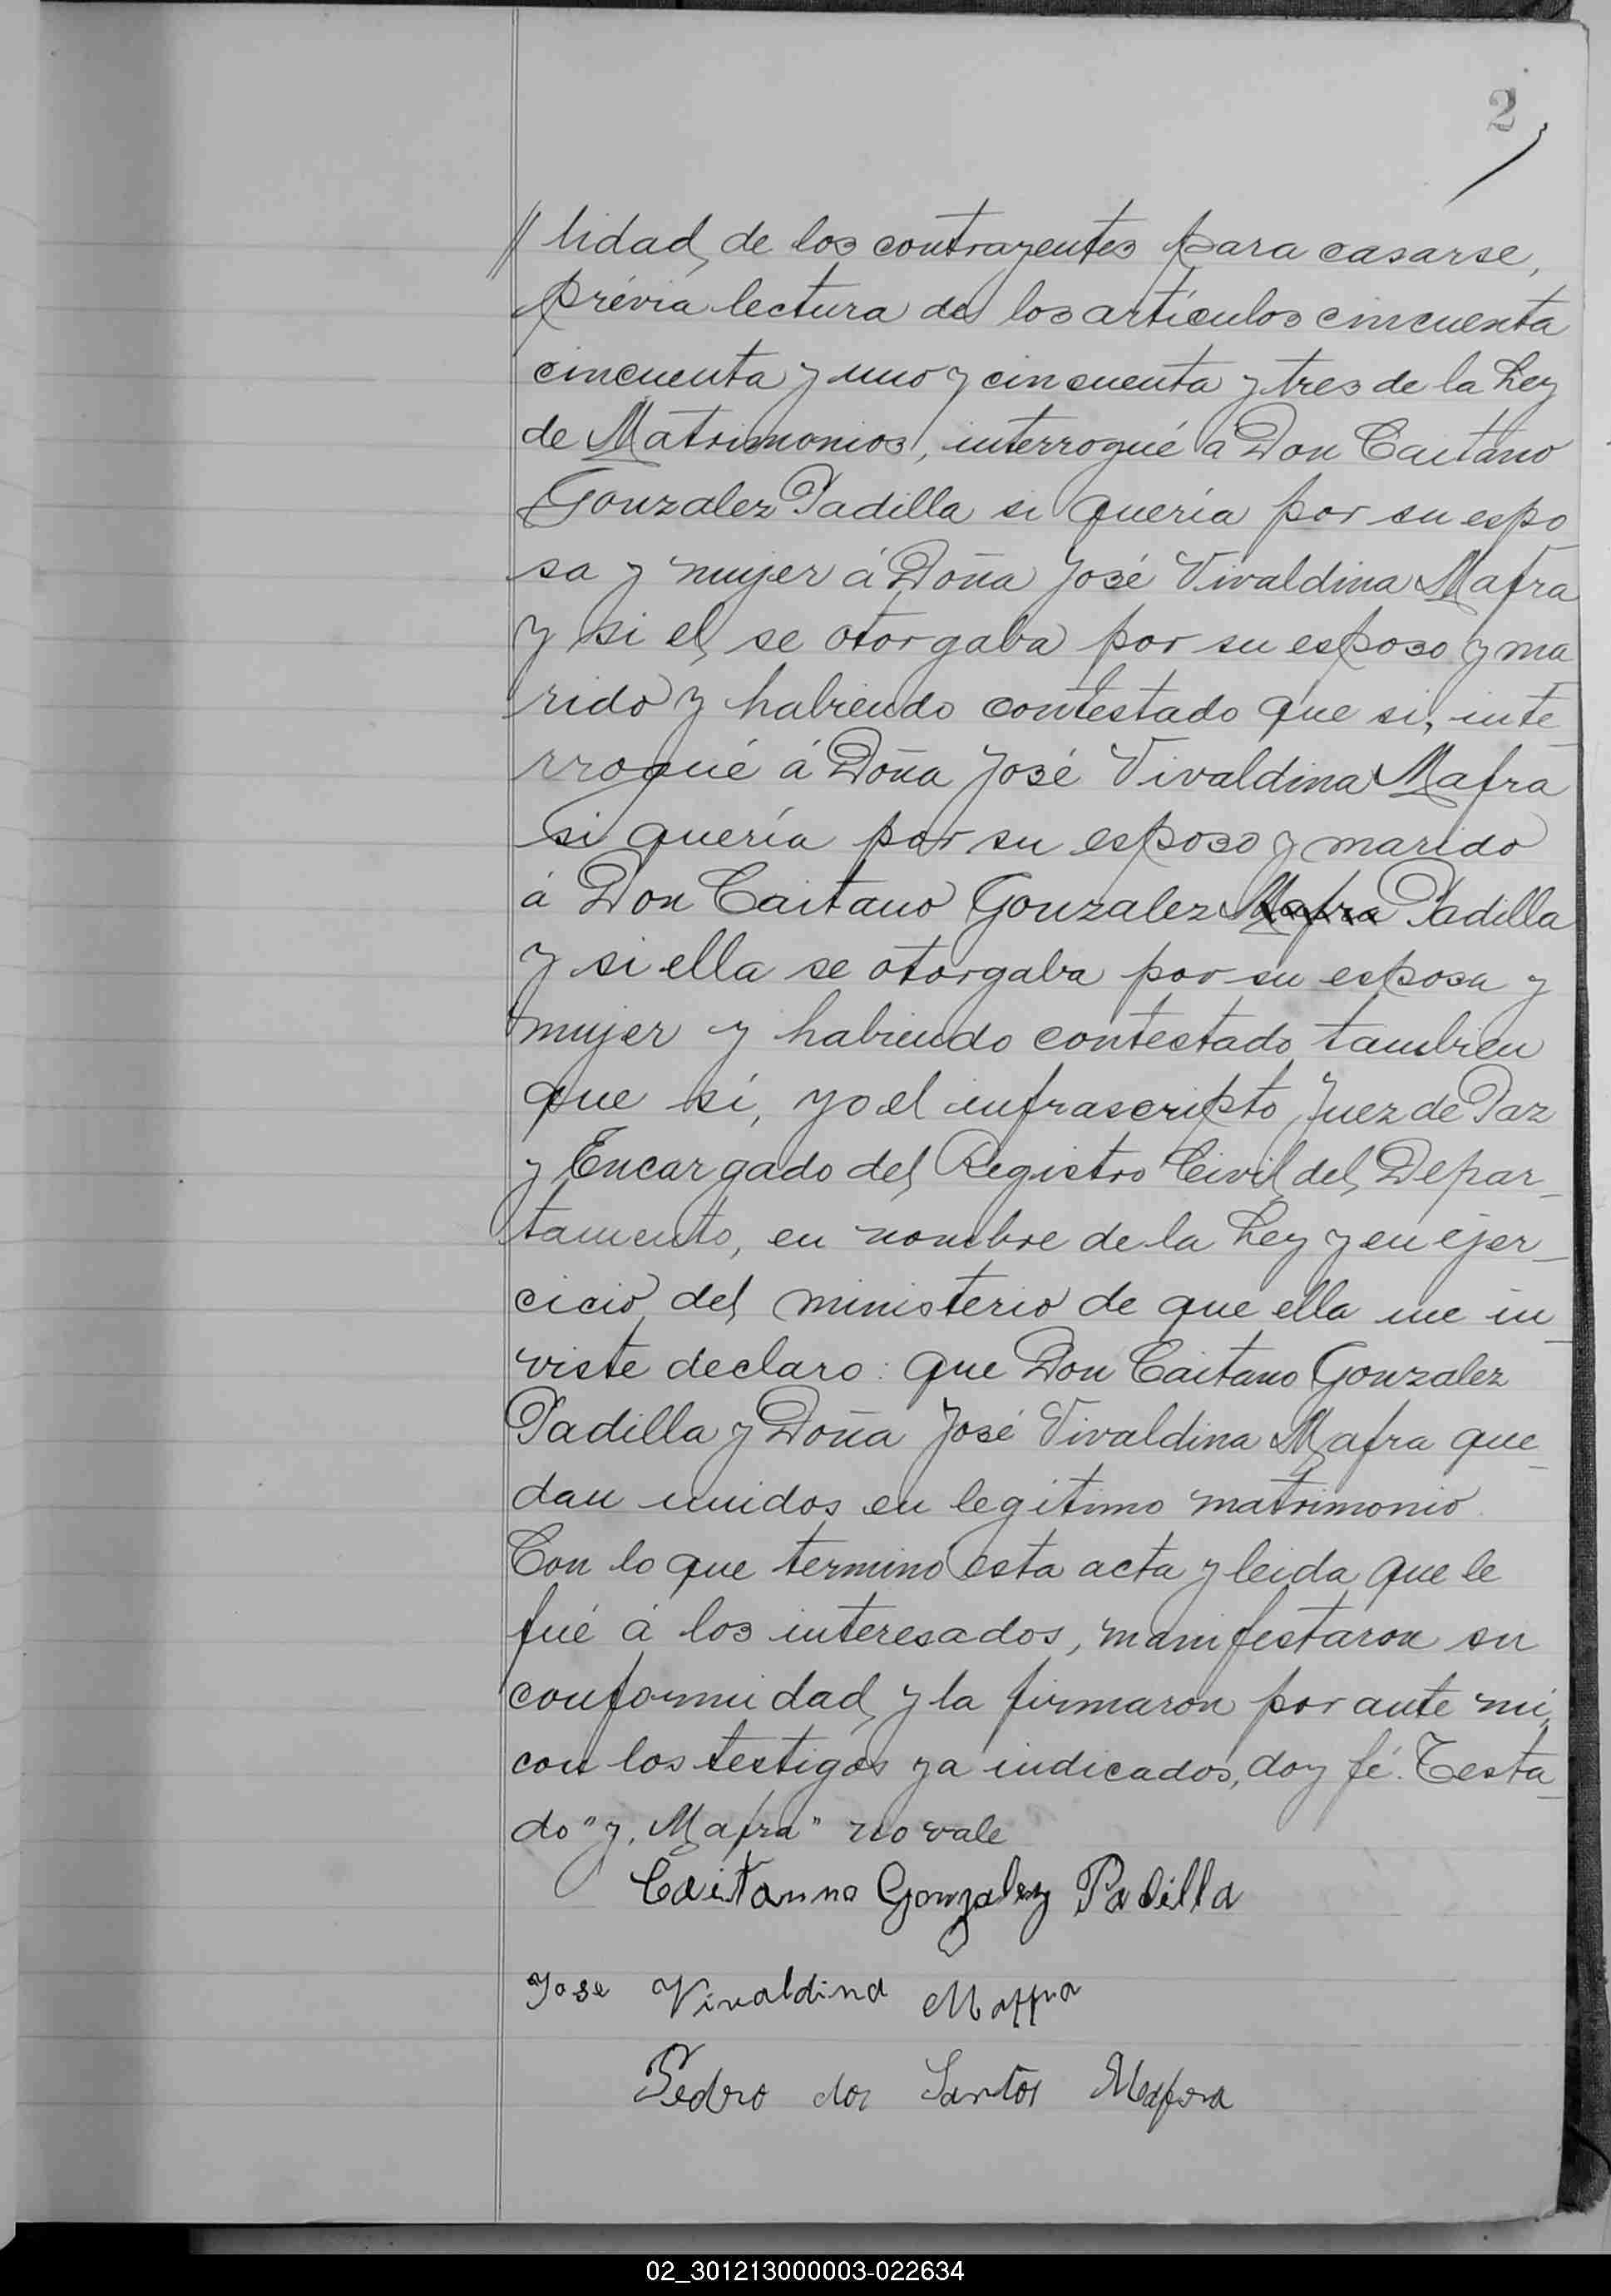 2
// lidad de los contrayentes para casarse,
prévia lectura de los artículos cincuenta
cincuenta y uno y cincuenta y tres de la Ley
de Matrimonios, interrogué á Don Caitano
Gonzalez Padilla si quería por su espo
sa y mujer á Doña José Vivaldina Mafra
y si el se otorgaba por su esposo y ma
rido y habiendo contestado que si, inte_
rrogué á Doña José Vivaldina Mafra
si quería por su esposo y marido
á Don Caitano Gonzalez Mafra Padilla
y si ella se otorgaba por su esposa y
mujer y habiendo contestado tambien
que sí, yo el infrascripto Juez de Paz
y Encargado del Registro Civil del Depar_
tamento, en nombre de la Ley y en ejer_
cicio del ministerio de que ella me in_
viste declaro: que Don Caitano Gonzalez
Padilla y Doña José Vivaldina Mafra que_
dan unidos en legítimo matrimonio.
Con lo que terminó esta acta y leida que le
fué á los interesados, manifestaron su
conformidad y la firmaron por ante mi,
con los testigos ya indicados, doy fé. Testa_
do "y, Mafra" no vale
Caitanno Gonzalez Padilla
Jose Vivaldina Maffra
Pedro dos Santos Mafra
02_301213000003-022634